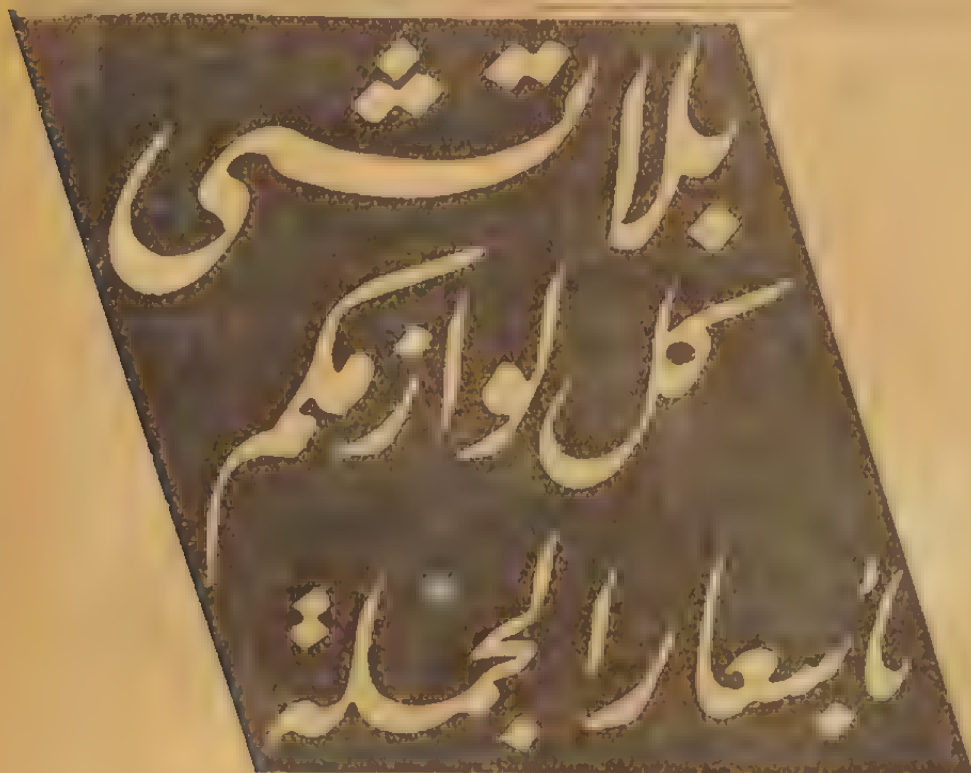 بلاتشى
كل لوازمكم
بأسعار الجملة